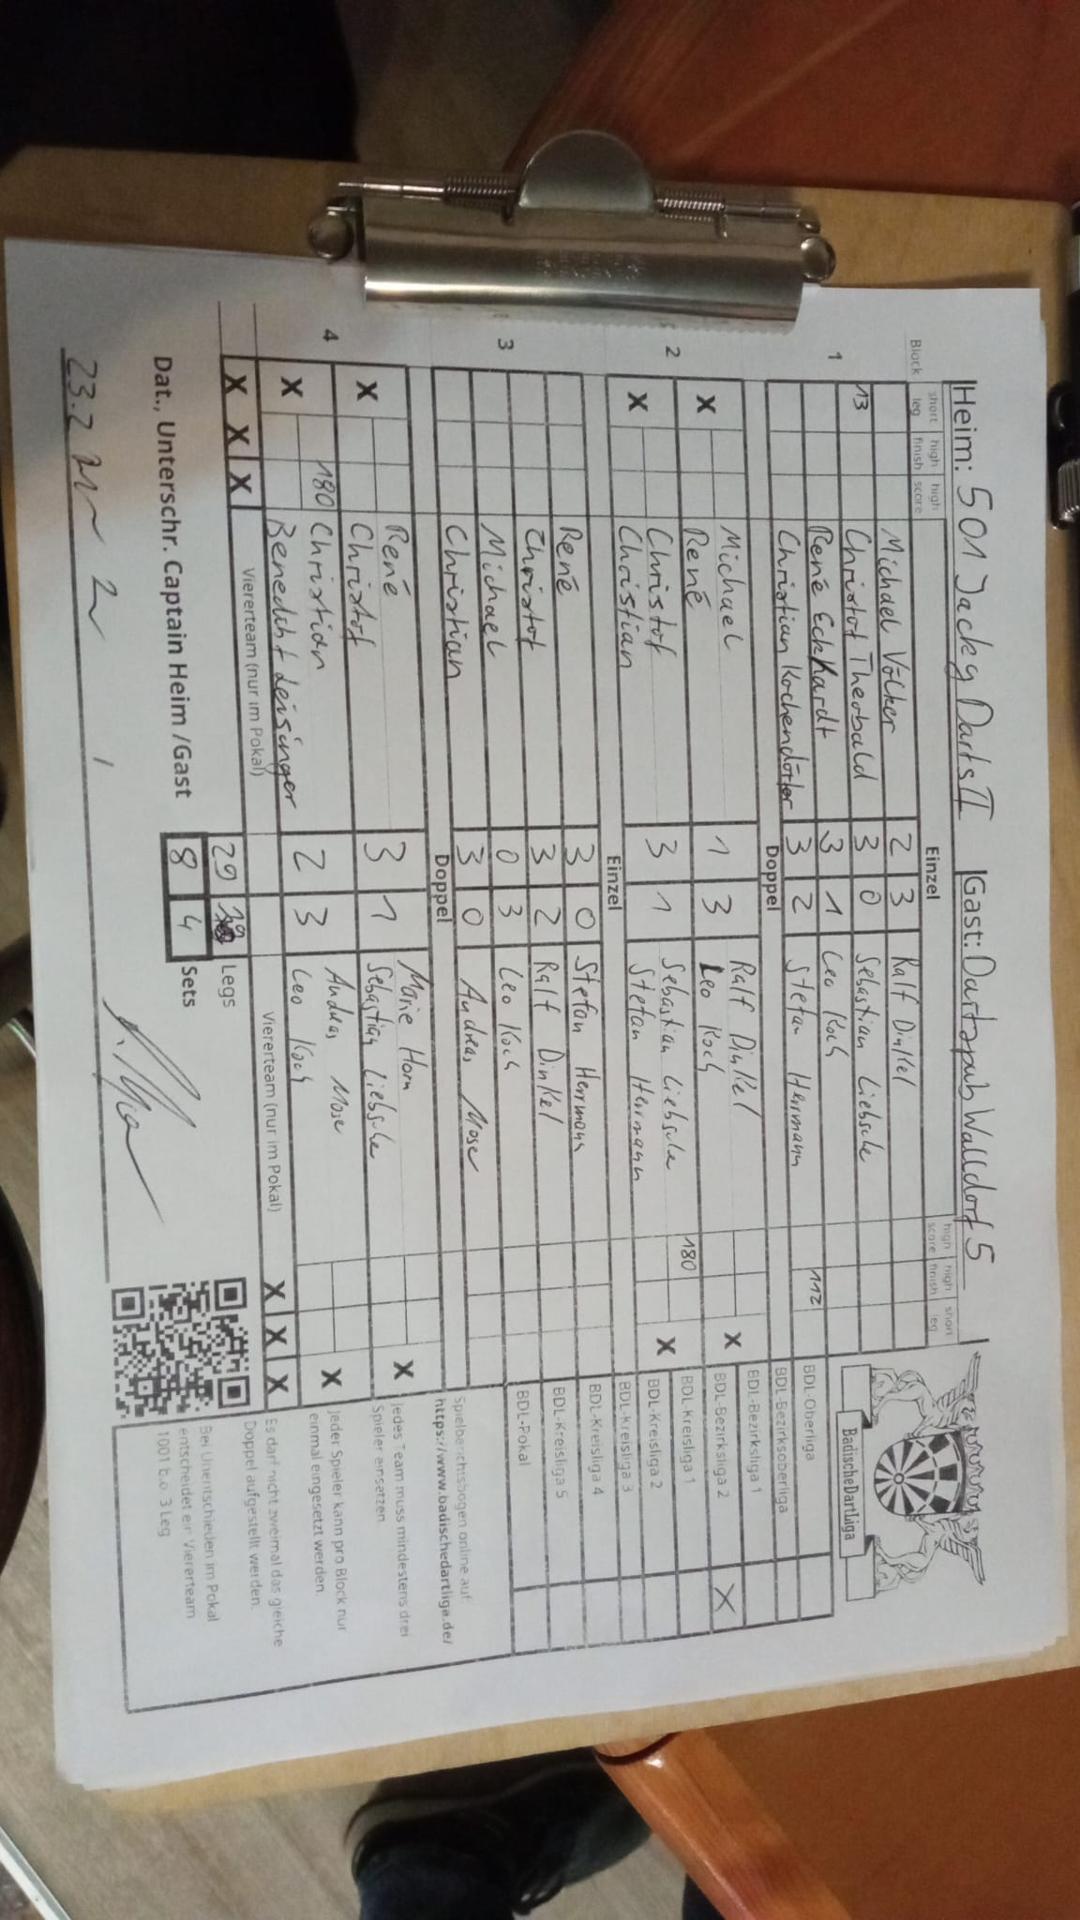 Heim: 501 Jacky Darts II Gast: Dartpub Walldorf 5
Block short leg high finish high score Einzel high score high finish short leg
1 Michael Völker 2 3 Ralf Dinkel
13 Christof Theobald 3 0 Sebastian Liebsche
René Eckhardt 3 1 Leo Koch
Christian Kochendörfer 3 2 Stefan Herrmann 112
Doppel
2 X Michael 1 3 Ralf Dinkel X
René Leo Koch
X Christof 3 1 Sebastian Liebsche 180 X
Christian Stefan Herrmann
Einzel
3 René 3 0 Stefan Herrmann
Christof 3 2 Ralf Dinkel
Michael 0 3 Leo Koch
Christian 3 0 Andreas Mose
Doppel
4 X René 3 1 Marie Horn X
Christof Sebastian Liebsche
X 180 Christian 2 3 Andreas Mose X
Benedict Leisinger Leo Koch
X X X Viererteam (nur im Pokal) Viererteam (nur im Pokal) X X X
29 Legs
8 4 Sets
Dat., Unterschr. Captain Heim /Gast
23.2
BadischeDartLiga
BDL-Oberliga
BDL-Bezirksoberliga
BDL-Bezirksliga 1
BDL-Bezirksliga 2 X
BDL-Kreisliga 1
BDL-Kreisliga 2
BDL-Kreisliga 3
BDL-Kreisliga 4
BDL-Kreisliga 5
BDL-Pokal
Spielberichtsbogen online auf:
https://www.badischedartliga.de/
Jedes Team muss mindestens drei
Spieler einsetzen.
Jeder Spieler kann pro Block nur
einmal eingesetzt werden.
Es darf nicht zweimal das gleiche
Doppel aufgestellt werden.
Bei Unentschieden im Pokal
entscheidet ein Viererteam
1001 b.o. 3 Leg